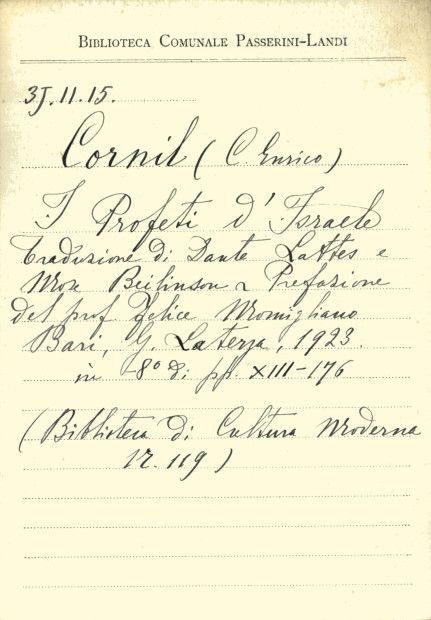 BIBLIOTECA COMUNALE PASSERINI-LANDI
3J.11.15.
Cornil (C. Enrico)
I Profeti d'Israele
traduzione di Dante Lattes e
Mosè Beilinson e Prefazione
del prof. Felice Momigliano
Bari, G. Laterza, 1923.
in -8° di pp. XIII-176
(Biblioteca di Cultura Moderna
n. 119)